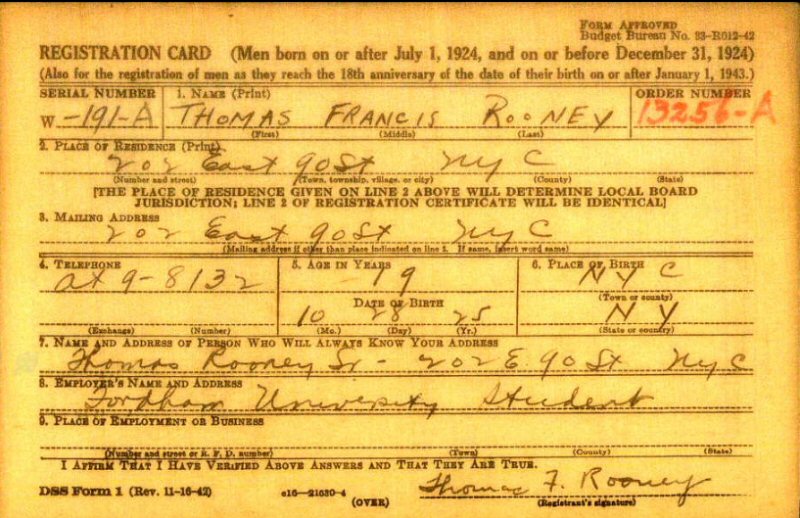 FORM APPROVED
Budget Bureau No. 33-R012-42
REGISTRATION CARD (Men born on or after July 1, 1924, and on or before December 31, 1924)
(Also for the registration of men as they reach the 18th anniversary of the date of their birth on or after January 1, 1943.)
SERIAL NUMBER 1. NAME (Print) ORDER NUMBER
W -191-A THOMAS FRANCIS ROONEY 13256-A
(First) (Middle) (Last)
2. PLACE OF RESIDENCE (Print)
202 East 90 St NYC
(Number and street) (Town, township, village, or city) (County) (State)
[THE PLACE OF RESIDENCE GIVEN ON LINE 2 ABOVE WILL DETERMINE LOCAL BOARD
JURISDICTION; LINE 2 OF REGISTRATION CERTIFICATE WILL BE IDENTICAL]
3. MAILING ADDRESS
202 East 90 St NYC
(Mailing address if other than place indicated on line 2. If same, insert word same)
4. TELEPHONE 5. AGE IN YEARS 6. PLACE OF BIRTH
At 9-8132 19 NYC
(Town or county)
DATE OF BIRTH
10 28 25 NY
(Exchange) (Number) (Mo.) (Day) (Yr.) (State or country)
7. NAME AND ADDRESS OF PERSON WHO WILL ALWAYS KNOW YOUR ADDRESS
Thomas Rooney Sr - 202 E 90 St NYC
8. EMPLOYER'S NAME AND ADDRESS
Fordham University Student
9. PLACE OF EMPLOYMENT OR BUSINESS
(Number and street or R. F. D. number) (Town) (County) (State)
I AFFIRM THAT I HAVE VERIFIED ABOVE ANSWERS AND THAT THEY ARE TRUE.
DSS Form 1 (Rev. 11-16-42) c16-21630-4 (OVER) Thomas F. Rooney
(Registrant's signature)